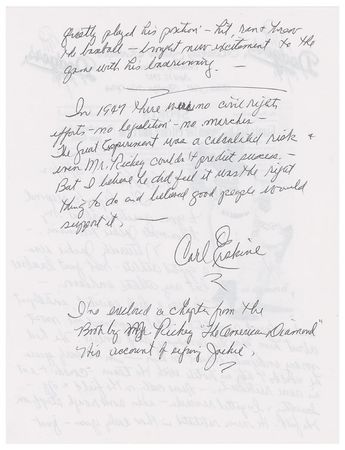 greatly played his position - hit, ran & threw
the baseball - brought new excitement to the
game with his baserunning. -
In 1947 there were no civil rights
efforts - no legislation - no marches -
The Great Experiment was a calculated risk &
even Mr. Rickey couldn't predict success, -
But I believe he did feel it was the right
thing to do and believed good people would
support it, -
Carl Erskine
I've enclosed a chapter from the
Book by Mr Rickey "The American Diamond"
His account of signing Jackie,